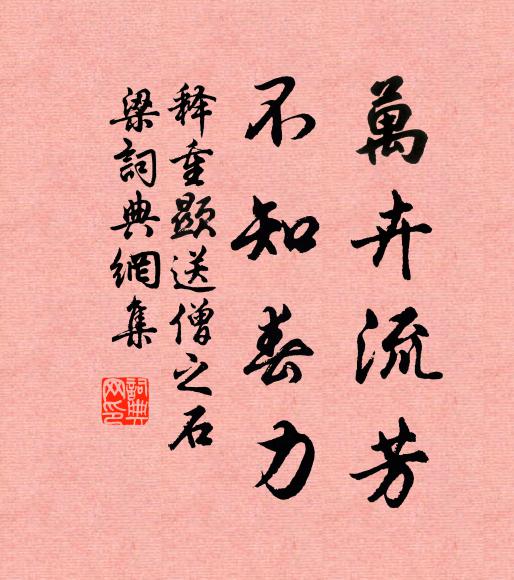 萬卉流芳
不知春力
释重顯送僧之石
梁詞典網集
詞典
网印